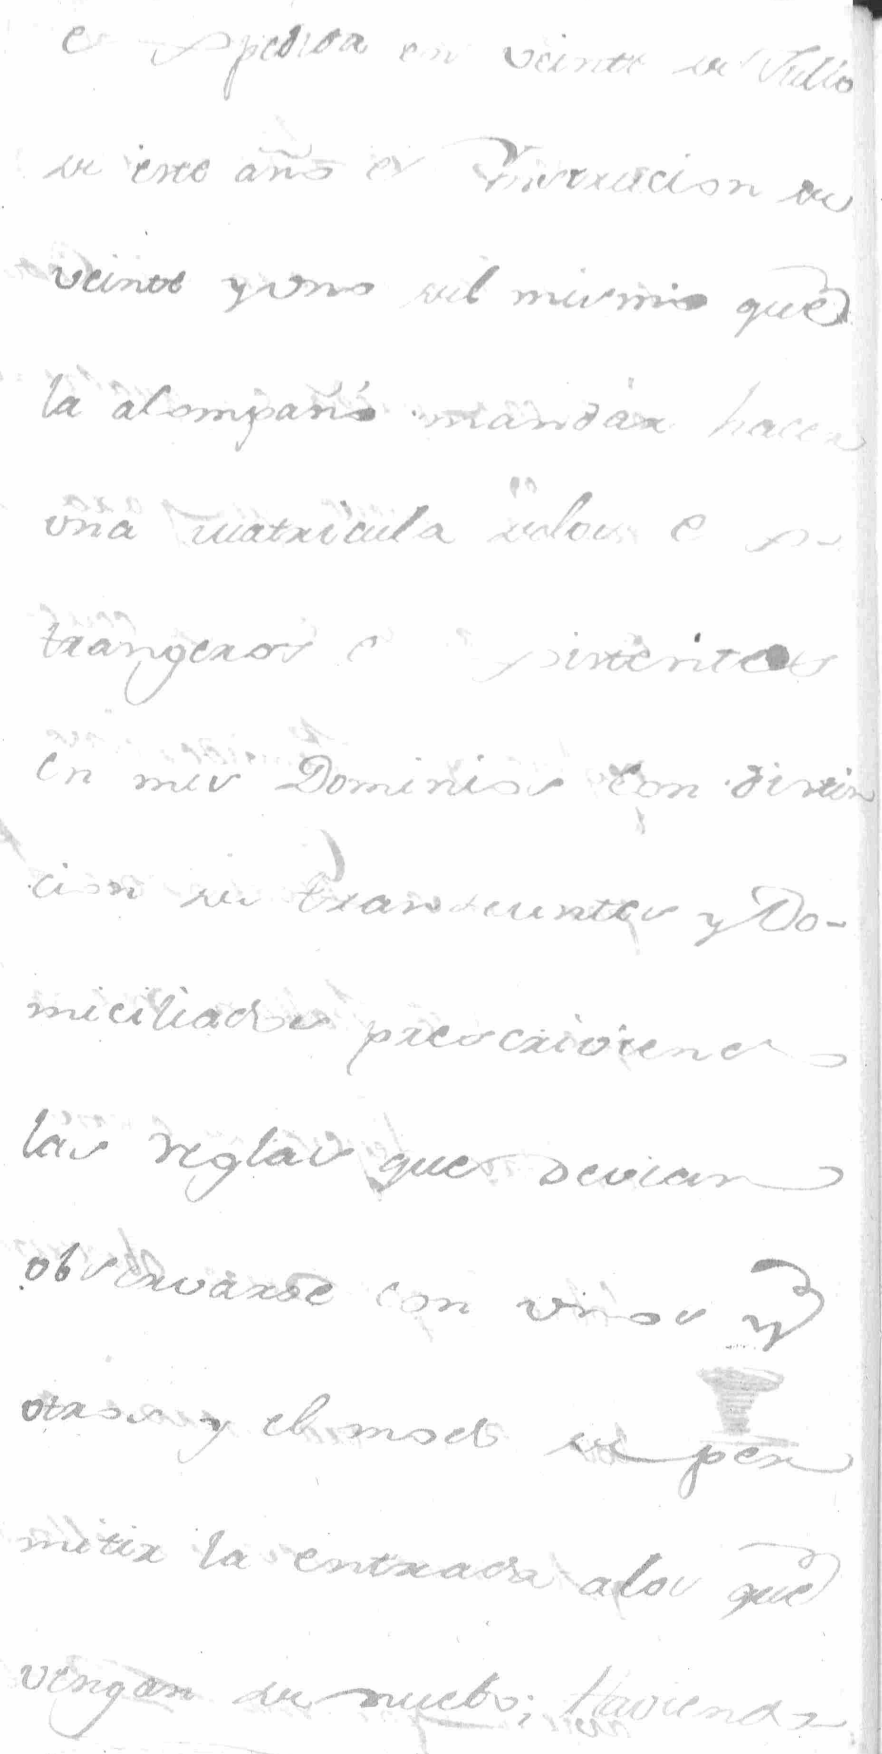 expedida en veinte de Jullio
de este año é Ynstrucion de
veinte y uno del mismo que
la acompañó mandár hacer
una matricula delos ex-
trangeros existentes
en mis Dominios con distin
cion de transeuntes y Do-
miciliados prescriviendo
las reglas que devian
observarse con unos y
otros y el modo de per
mitir la entrada alos que
vengan de nuebo; Haviendo